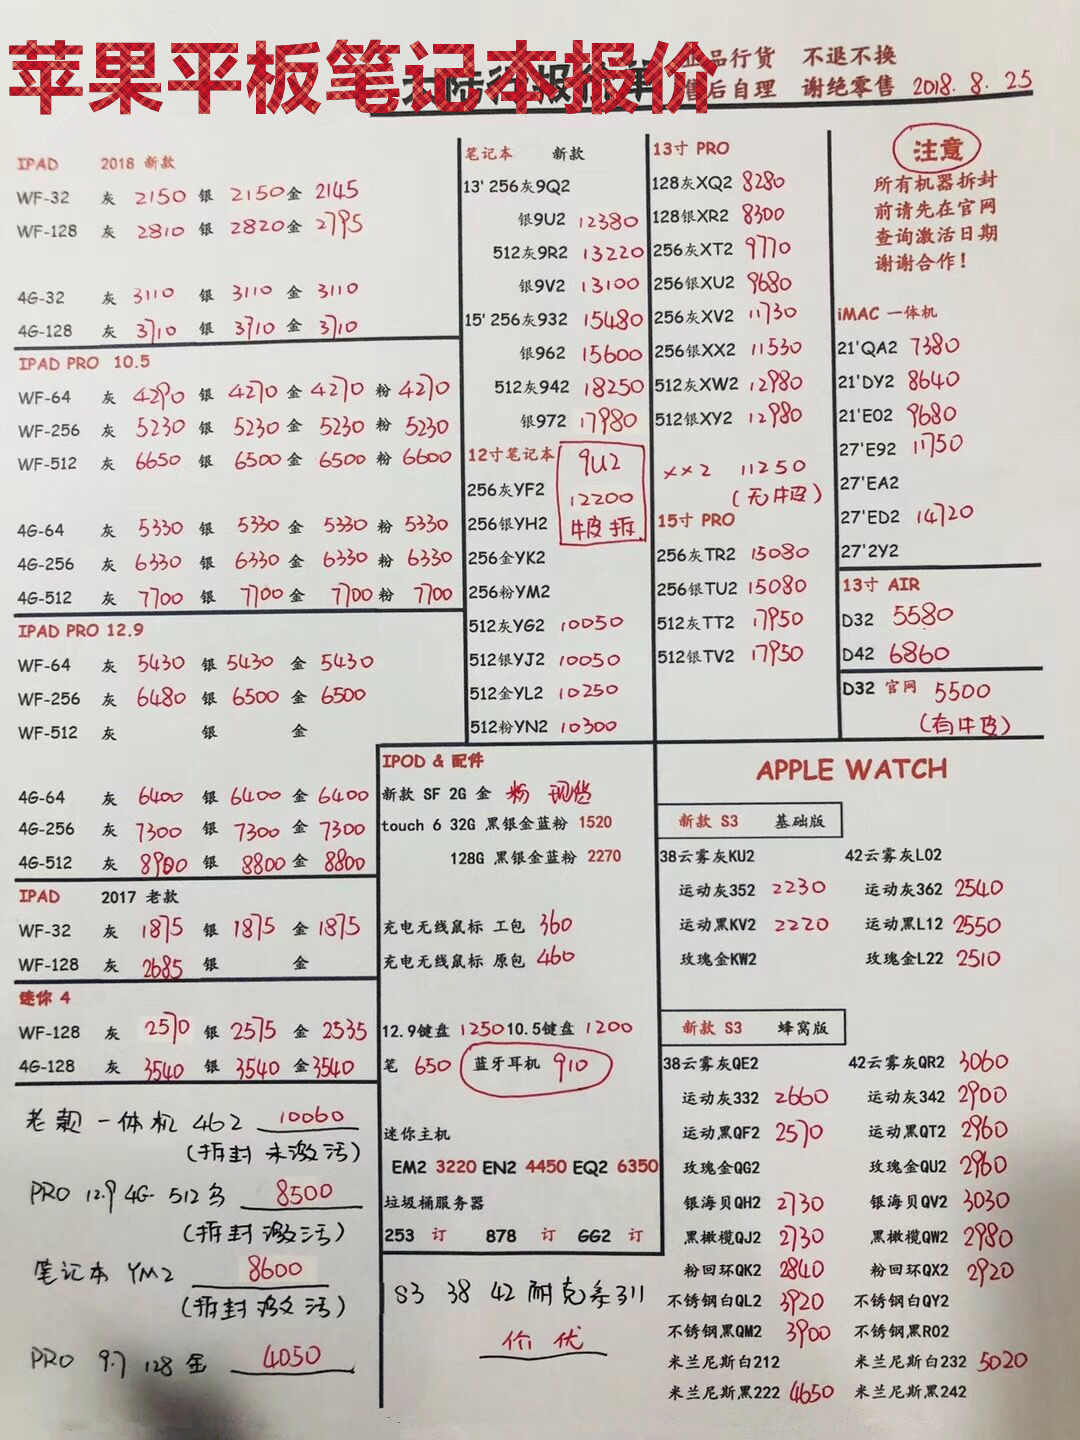 苹果平板笔记本报价
正品行货 不退不换
售后自理 谢绝零售 2018.8.25
IPAD 2018 新款
WF-32 灰 2150 银 2150 金 2145
WF-128 灰 2810 银 2820 金 2795
4G-32 灰 3110 银 3110 金 3110
4G-128 灰 3710 银 3710 金 3710
IPAD PRO 10.5
WF-64 灰 4290 银 4270 金 4270 粉 4270
WF-256 灰 5230 银 5230 金 5230 粉 5230
WF-512 灰 6650 银 6500 金 6500 粉 6600
4G-64 灰 5330 银 5330 金 5330 粉 5330
4G-256 灰 6330 银 6330 金 6330 粉 6330
4G-512 灰 7700 银 7700 金 7700 粉 7700
IPAD PRO 12.9
WF-64 灰 5430 银 5430 金 5430
WF-256 灰 6480 银 6500 金 6500
WF-512 灰 银 金
4G-64 灰 6400 银 6400 金 6400
4G-256 灰 7300 银 7300 金 7300
4G-512 灰 8900 银 8800 金 8800
IPAD 2017 老款
WF-32 灰 1875 银 1875 金 1875
WF-128 灰 2685 银 金
迷你 4
WF-128 灰 2570 银 2575 金 2535
4G-128 灰 3540 银 3540 金 3540
老款一体机 462 10060
(拆封未激活)
PRO 12.9 4G- 512 10060
(拆封激活)
笔记本 YM2 8600
(拆封激活)
PRO 9.7 128 金 4050
笔记本 新款
13' 256灰9Q2
银9U2 12380
512灰9R2 13220
银9V2 13100
15' 256灰932 15480
银962 15600
512灰942 18250
银972 17980
12寸笔记本
9U2
12200
牛皮拆
256灰YF2
256银YH2
256金YK2
256粉YM2
512灰YG2 10050
512银YJ2 10050
512金YL2 10250
512粉YN2 10300
13寸 PRO
128灰XQ2 8280
128银XR2 8300
256灰XT2 9770
256银XU2 9680
256灰XV2 11730
256银XX2 11530
512灰XW2 12980
512银XY2 12980
XX2 11250
(无牛皮)
15寸 PRO
256灰TR2 15080
256银TU2 15080
512灰TT2 17950
512银TV2 17950
注意
所有机器拆封
前请先在官网
查询激活日期
谢谢合作!
iMAC 一体机
21'QA2 7380
21'DY2 8640
21'E02 9680
27'E92 11750
27'EA2
27'ED2 14720
27'2Y2
13寸 AIR
D32 5580
D42 6860
D32 官网 5500
(有牛皮)
IPOD & 配件
新款 SF 2G 金 粉 现货
touch 6 32G 黑银金蓝粉 1520
128G 黑银金蓝粉 2270
充电无线鼠标 工包 360
充电无线鼠标 原包 460
12.9键盘 1250 10.5键盘 1200
笔 650 蓝牙耳机 910
迷你主机
EM2 3220 EN2 4450 EQ2 6350
垃圾桶服务器
253 订 878 订 GG2 订
S3 38 42 耐克系列
价优
APPLE WATCH
新款 S3 基础版
38云雾灰KU2 42云雾灰L02
运动灰352 2230 运动灰362 2540
运动黑KV2 2220 运动黑L12 2550
玫瑰金KW2 玫瑰金L22 2510
新款 S3 蜂窝版
38云雾灰QE2 42云雾灰QR2 3060
运动灰332 2660 运动灰342 2900
运动黑QF2 2570 运动黑QT2 2960
玫瑰金QG2 玫瑰金QU2 2960
银海贝QH2 2730 银海贝QV2 3030
黑橄榄QJ2 2730 黑橄榄QW2 2980
粉回环QK2 2840 粉回环QX2 2920
不锈钢白QL2 3920 不锈钢白QY2
不锈钢黑QM2 3900 不锈钢黑R02
米兰尼斯白212 米兰尼斯白232 5020
米兰尼斯黑222 4650 米兰尼斯黑242